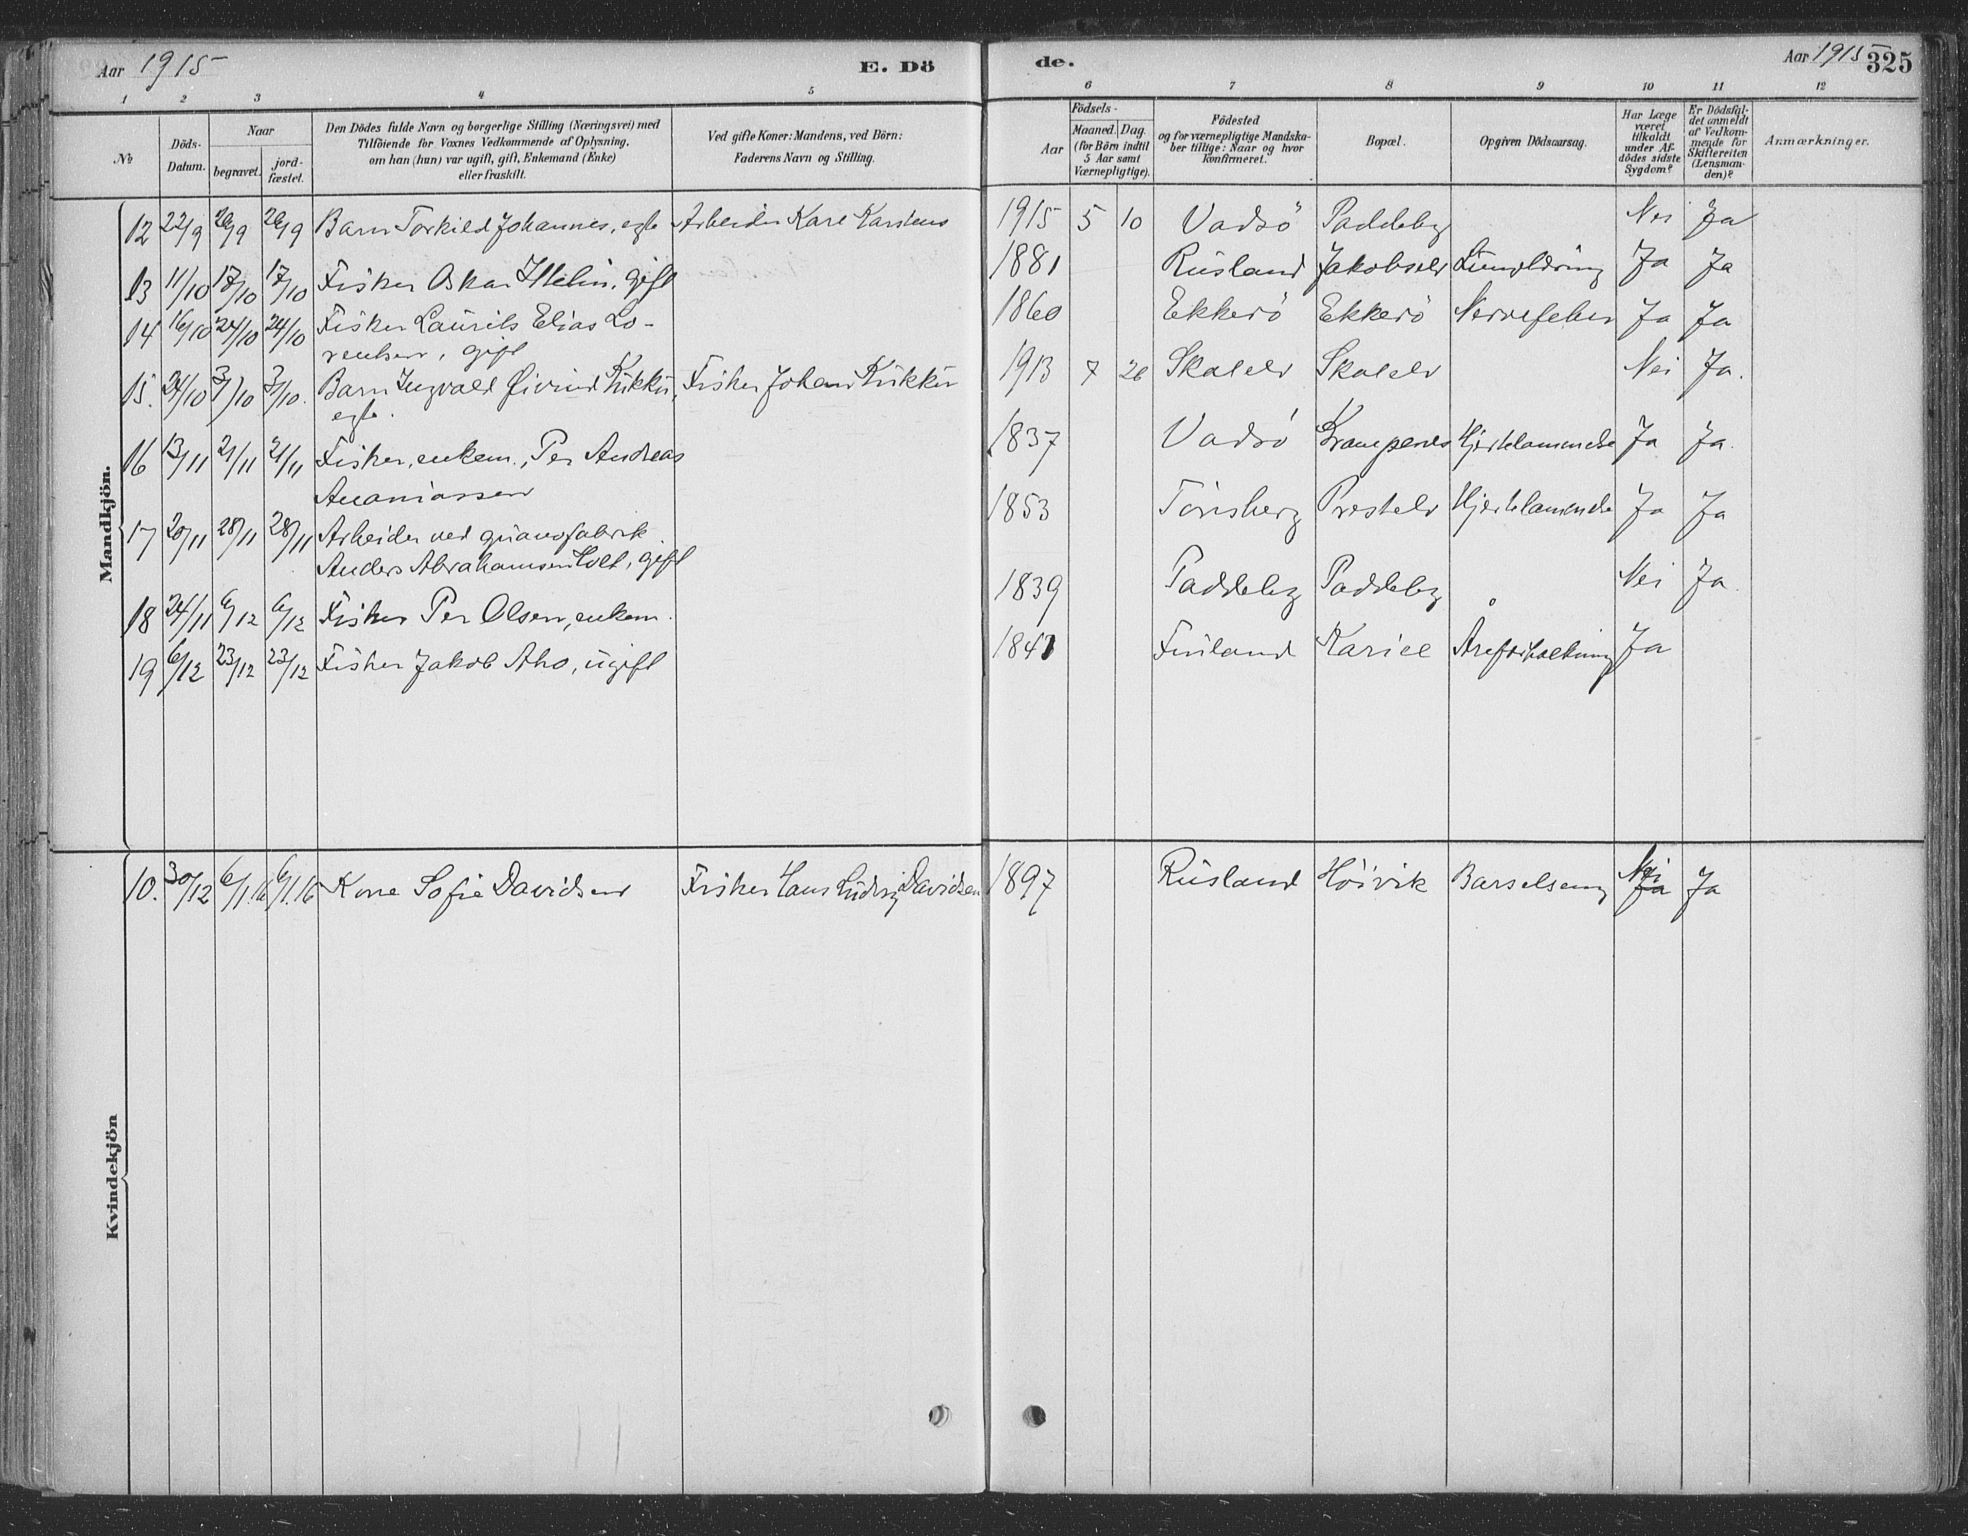 Aar 1915 E. Dö de. Aar 1915 325
1 2 3 4 5 6 7 8 9 10 11 12
No
Döds-Datum.
Naar
begravet.
jord-fæstet.
Den Dödes fulde Navn og borgerlige Stilling (Næringsvei) med
Tilföiende for Voxnes Vedkommende af Oplysning,
om han (hun) var ugift, gift, Enkemand (Enke)
eller fraskilt.
Ved gifte Koner: Mandens, ved Börn:
Faderens Navn og Stilling.
Födsels-
Aar
Maaned. Dag.
(for Börn indtil
5 Aar samt
Værnepligtige).
Födested
og for værnepligtige Mandska-
ber tillige: Naar og hvor
konfirmeret.
Bopæl.
Opgiven Dödsaarsag.
Har Læge
været
tilkaldt
under Af-
dödes sidste
Sygdom?
Er Dödsfal-
det anmeldt
af Vedkom-
mende for
Skifteretten
(Lensman-
den)?
Anmærkninger.
Mandkjön.
12 22/9 26/9 26/9 Barn Torkild Johannes, egte Arbeider Karl Karstens 1915 5 10 Vadsö Paddeby Nei Ja
13 11/10 17/10 17/10 Fisker Oskar gift 1881 Rusland Jakobselv Ja Ja
14 16/10 24/10 24/10 Fisker Laurits Elias Lo-
rentsen, gift 1860 Ekkerö Ekkerö Nervefeber Ja Ja
15. 24/10 Barn Ingvald Øivind Kukku, Fisker Johan Kukku 1913 7 Skalelv Skalelv Nei Ja.
egte.
16 13/11 21/11 21/11 Fisker, enkem., Per Andreas
Ananiassen 1837 Vadsö Krampenes Hjertelammelse Ja Ja.
17 20/11 28/11 28/11 Arbeider ved guanofabrik
Anders Abrahamsen Holt, gift 1853 Tönsberg Prestelv Hjertelammelse Ja Ja
18 24/11 6/12 6/12 Fisker Per Olsen, enkem. 1839 Paddeby Paddeby Nei Ja.
19 6/12 23/12 23/12 Fisker Jakob Aho, ugift 1841 Finland Kariel Åreforkalkning Ja
Kvindekjön
10. 30/12 6/1.16 6/1.16 Kone Sofie Davidsen Fisker Hans Ludvig Davidsen 1897 Rusland Höivik Barselseng Nei Ja Ja